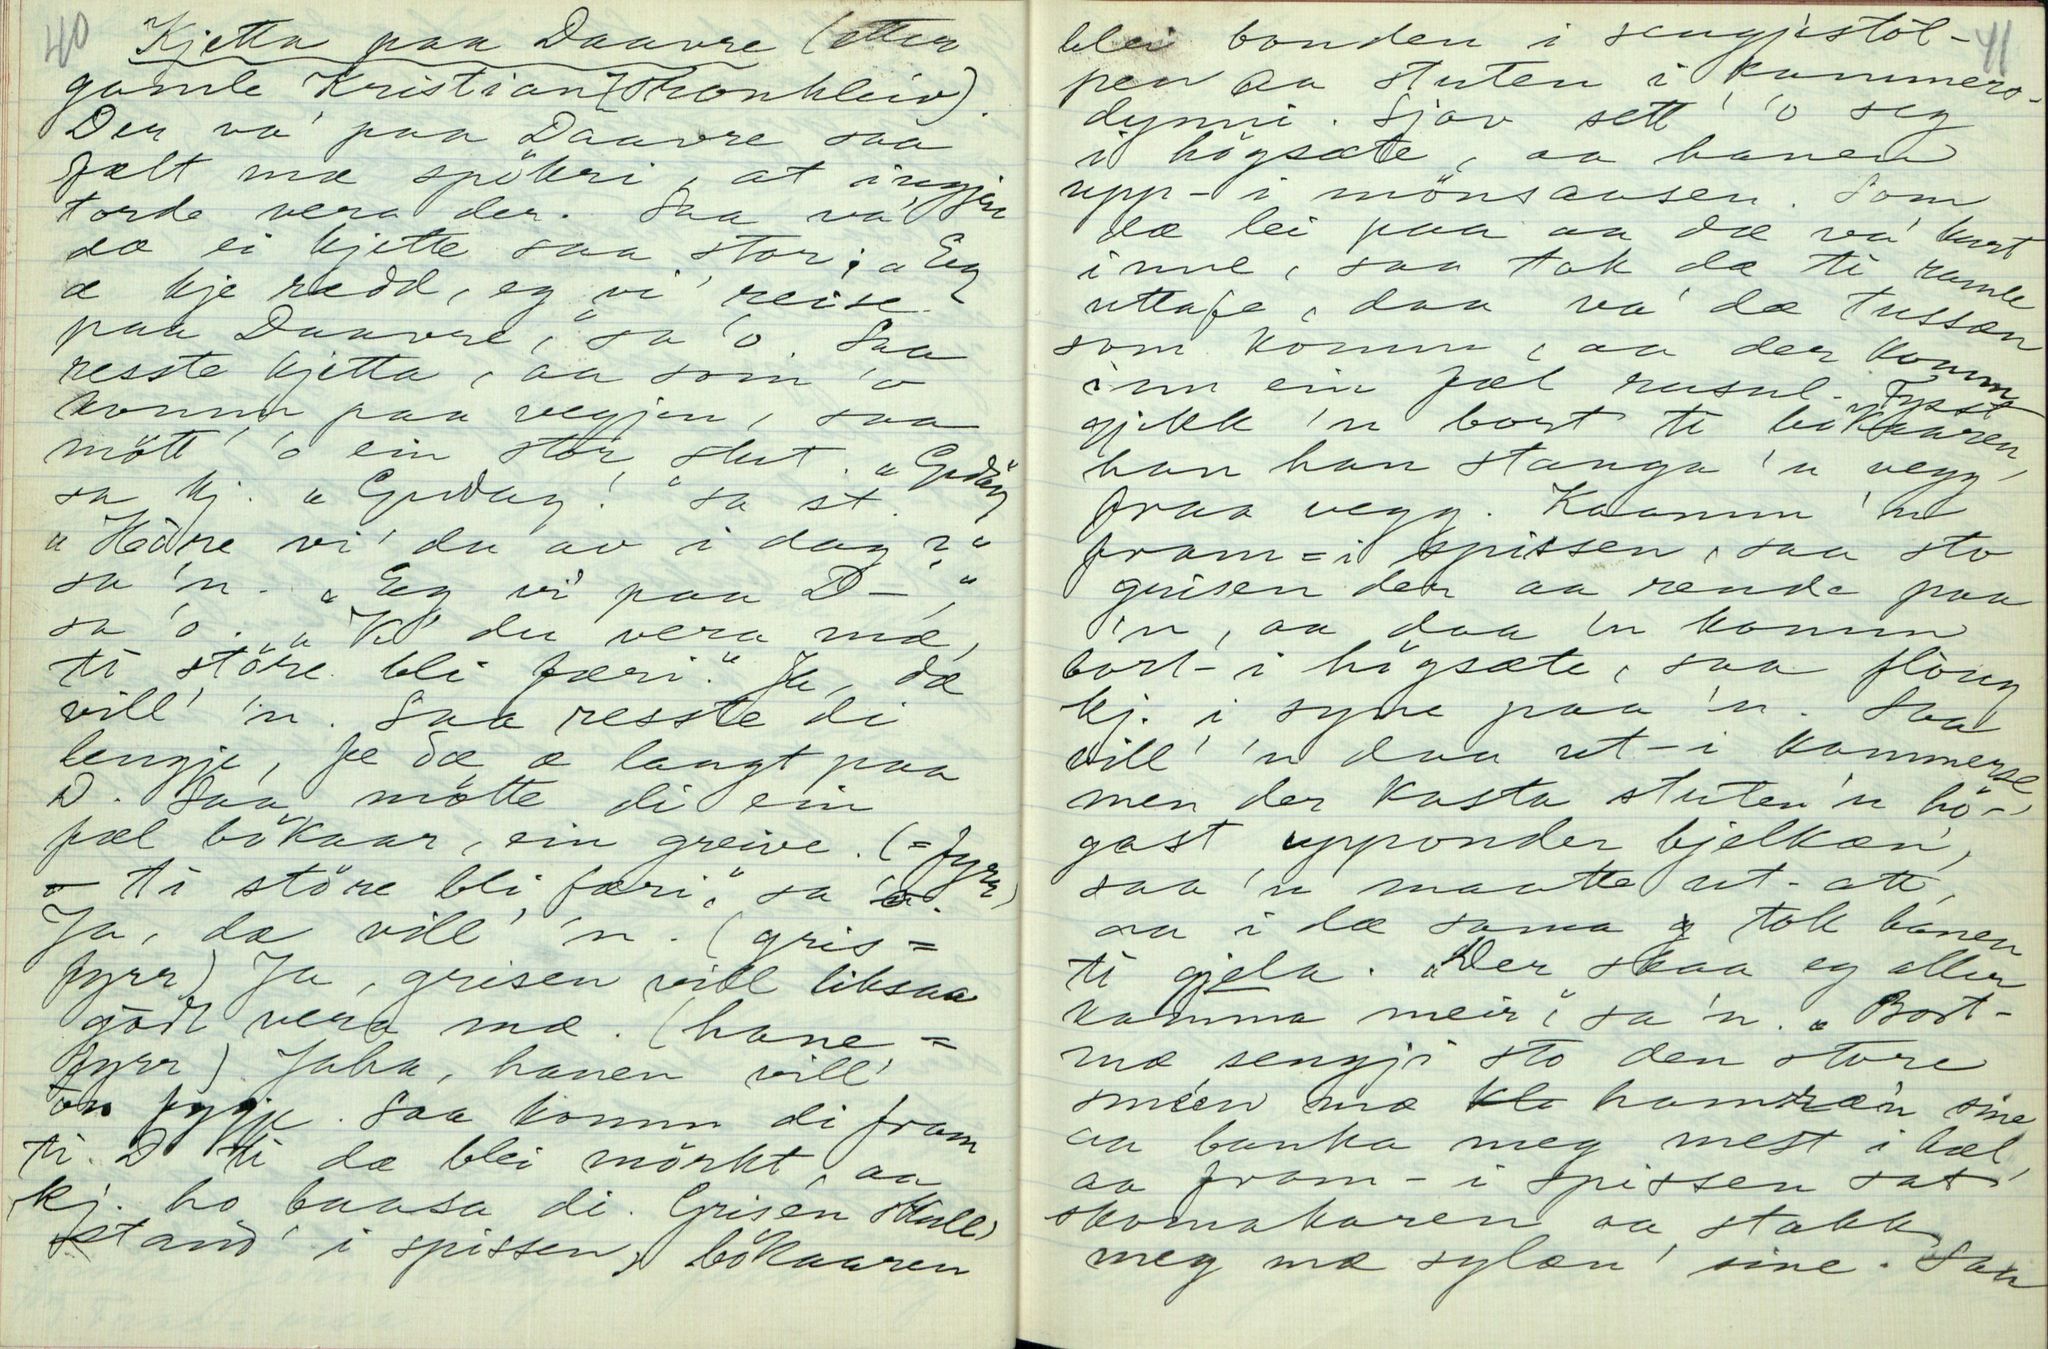 40
Kjetta paa Daavre (etter
gamle Kristian Skonhleiv).
Der va' paa Daavre saa
fælt mæ spökri, at ingjen
torde vera der. Saa va'
dæ ei kjette saa stor; „Eg
æ kje rædd, eg vi' reise
paa Daavre," sa 'o. Saa
resste kjetta, aa som 'o
komm paa vegjen, saa
mött' 'o ein stor stut. „Gudag
sa kj. „Gudag!" sa st.
„Hööre vi' du av i dag?"
sa 'n. „Eg vi' paa D–,"
sa 'o. „K' du vera mæ,
ti störe bli færi." Ja, dæ
vill' 'n. Saa resste di
lengje, fe dæ æ langt paa
D. Saa mötte di ein
fæl bökaar, ein greive. (= fyrr)
– ti störe bli færi," sa 'o.
Ja, dæ vill' 'n. (gris =
fyrr) Ja, grisen vill liksaa
godt vera mæ. (hane =
fyrr). Jaha, hanen vill'
on fygje. Saa komm di fram
ti D ti dæ blei mörkt, aa
kj. ho baasa di. Grisen skull'
stand' i spissen, bökaaren
41
blei bonden i sengjistöl-
pen aa stuten i kammers-
dynni. Sjøv sett' 'o seg
i högsæte, aa hanen
upp-i mönsaasen. Som
dæ lei paa aa dæ va' kust
inne, saa tok dæ ti ramle
uttafe, daa va' dæ tussan
som komm, aa der komm
inn ein fæl rusul. Fysst
gjekk 'n bort ti bökaaren,
han han stanga 'n vegg
fraa vegg. Kaamm 'n
fram-i spissen, saa sto
grisen der aa rende paa
'n, aa daa 'n komm
bort-i högsæte, saa flöug
kj. i syne paa 'n. Saa
vill' 'n daa ut-i kammerse,
men der kasta stuten 'n hö-
gast upponder bjelkæn,
saa 'n maatte ut-att,
aa i dæ sama tok hanen
ti gjela. „Der skaa eg aller
komma meir," sa 'n. „Bort-
mæ sengji sto den store
smeen mæ hamræ'n sine
aa banka meg mest i hæl,
aa fram-i spissen sat
skomakaren aa stakk
meg mæ sylæn' sine. Saa